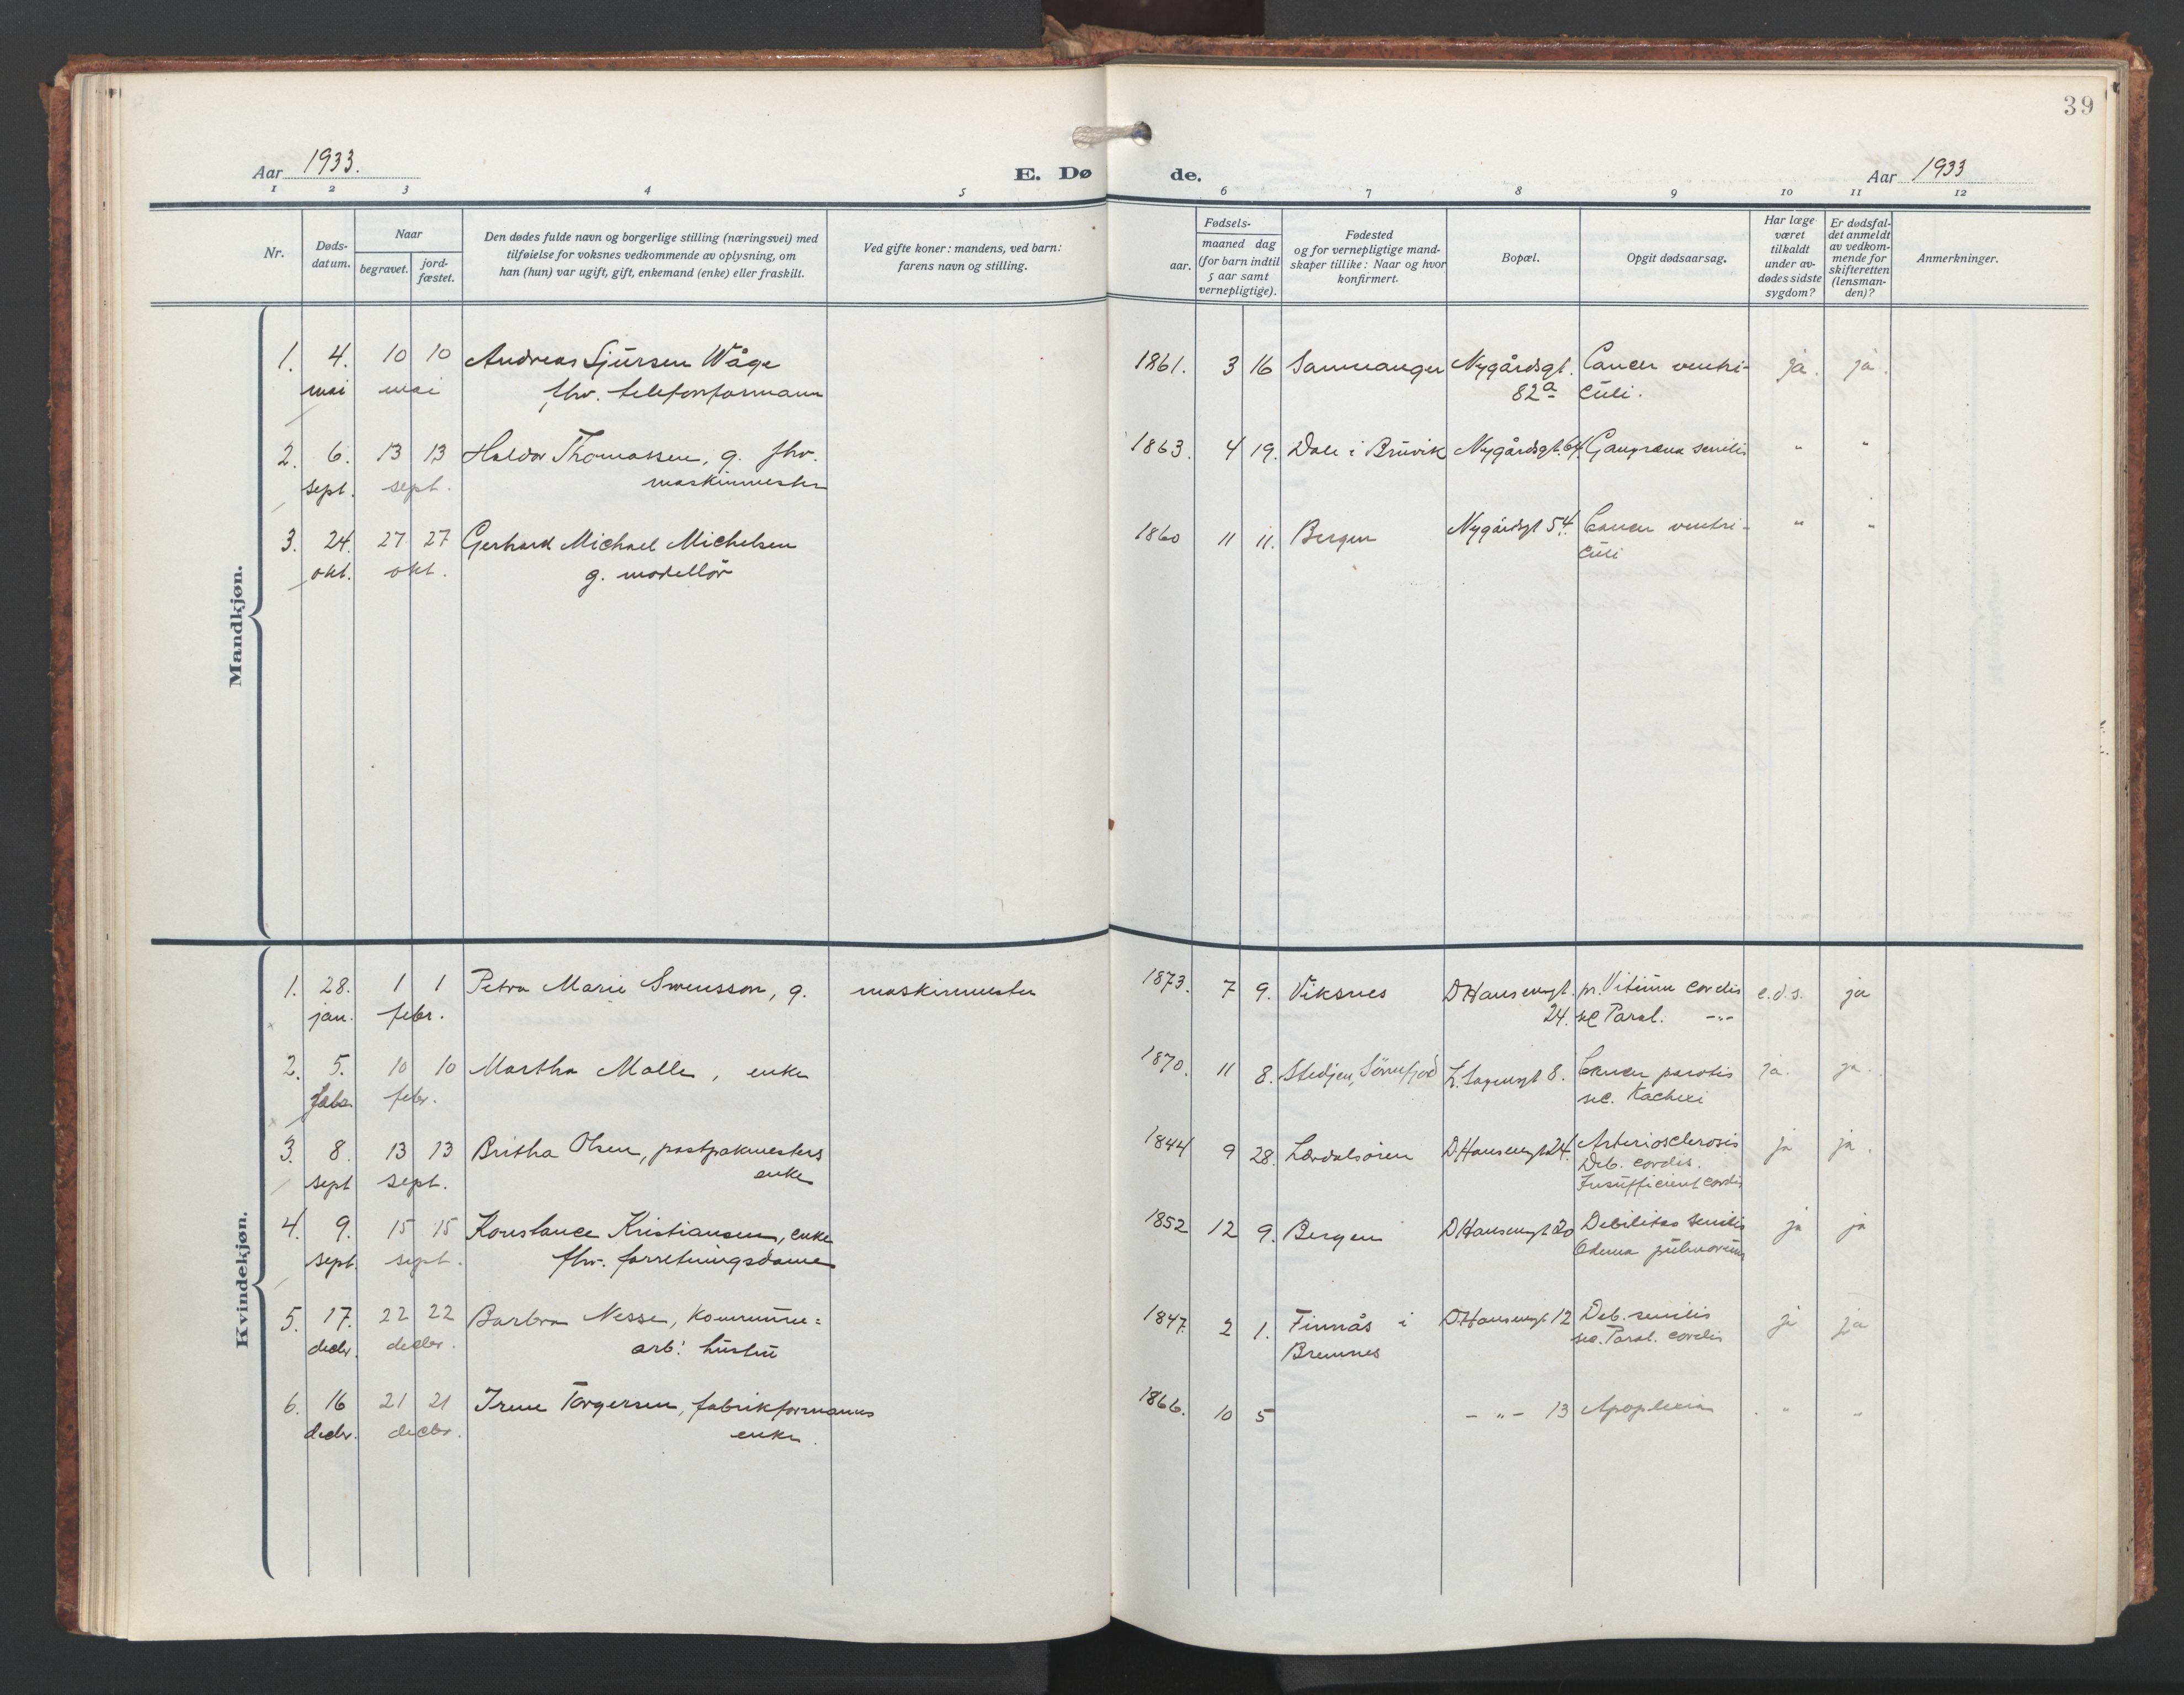 39
Aar 1933.
E. Dø de.
Aar 1933
1 2 3 4 5 6 7 8 9 10 11 12
Nr.
Døds-
datum.
Naar
begravet.
jord-
fæstet.
Den dødes fulde navn og borgerlige stilling (næringsvei) med
tilføielse for voksnes vedkommende av oplysning, om
han (hun) var ugift, gift, enkemand (enke) eller fraskilt.
Ved gifte koner: mandens, ved barn:
farens navn og stilling.
Fødsels-
aar.
maaned dag
(for barn indtil
5 aar samt
vernepligtige).
Fødested
og for vernepligtige mand-
skaper tillike: Naar og hvor
konfirmert.
Bopæl.
Opgit dødsaarsag.
Har læge
været
tilkaldt
under av-
dødes sidste
sygdom?
Er dødsfal-
det anmeldt
av vedkom-
mende for
skifteretten
(lensman-
den)?
Anmerkninger.
Mandkjøn.
1. 4. 10 10 Andreas Sjursen Wåge 1861. 3 16 Samnanger Nygårdsgt. Cancer ventri- ja. ja.
mai mai fhv. telefonformann 82a culi.
2. 6. 13 13 Haldor Thomassen, g. fhv. 1863. 4 19. Dale i Bruvik Nygårdsgt. 64. Gangræna senilis " "
sept. sept. maskinmester
3. 24. 27 27 Gerhard Michael Michelsen 1860 11 11. Bergen Nygårdsgt 54. Cancer ventri- " "
okt. okt. g. modellör culi
Kvindekjøn.
1. 28. 1 1 Petra Marie Swensson, g. maskinmester 1873. 7 9. Viksnes D Hansensgt. pr. Vitium cordis e.d.s. ja
jan. febr. 24. sec Paral. -"-
2. 5. 10 10 Martha Malle, enke 1870. 11 8. Stedjen, Sönnfjord Cancer parotis ja. ja.
febr. febr. sec. Kachexi
3. 8. 13 13 Britha Olsen, postpakmesters 1844 9 28. Lærdalsören D. Hansensgt 24. Arteriosclerosis ja ja.
sept sept. enke Deb. cordis.
Insufficient cordis
4. 9. 15 15 Konstance Kristiansen, enke 1852 12 9. Bergen D Hansensgt 20 Debilitas senilis ja ja
sept. sept. fhv. forretningsdame Ödema pulmorum
5. 17. 22 22 Barbra Nesse, kommune= 1847. 2 1. Finnås i D. Hansensgt 12 Deb. senilis ja ja
decbr. decbr. arb: hustru Bremnes sec. Paral. cordis
6. 16 21 21 Irene Torgersen, fabrikformanns 1866. 10 5 - " - 13 Apoplexia " "
decbr. decbr. enke.